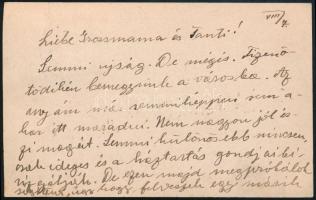 VIII/7.
Liebe Grossmama és Tanti!
Semmi ujság. De mégis. Tizenö-
tödikén bemegyünk a városba. Az
anyám már semmiképpen sem a-
kar itt maradni. Nem nagyon jól é-
zi magát. Semmi különösebb nincsen
csak ideges és a háztartás gondjai
De ezen majd megpróbálok
úgy hogy felveszek egy másik